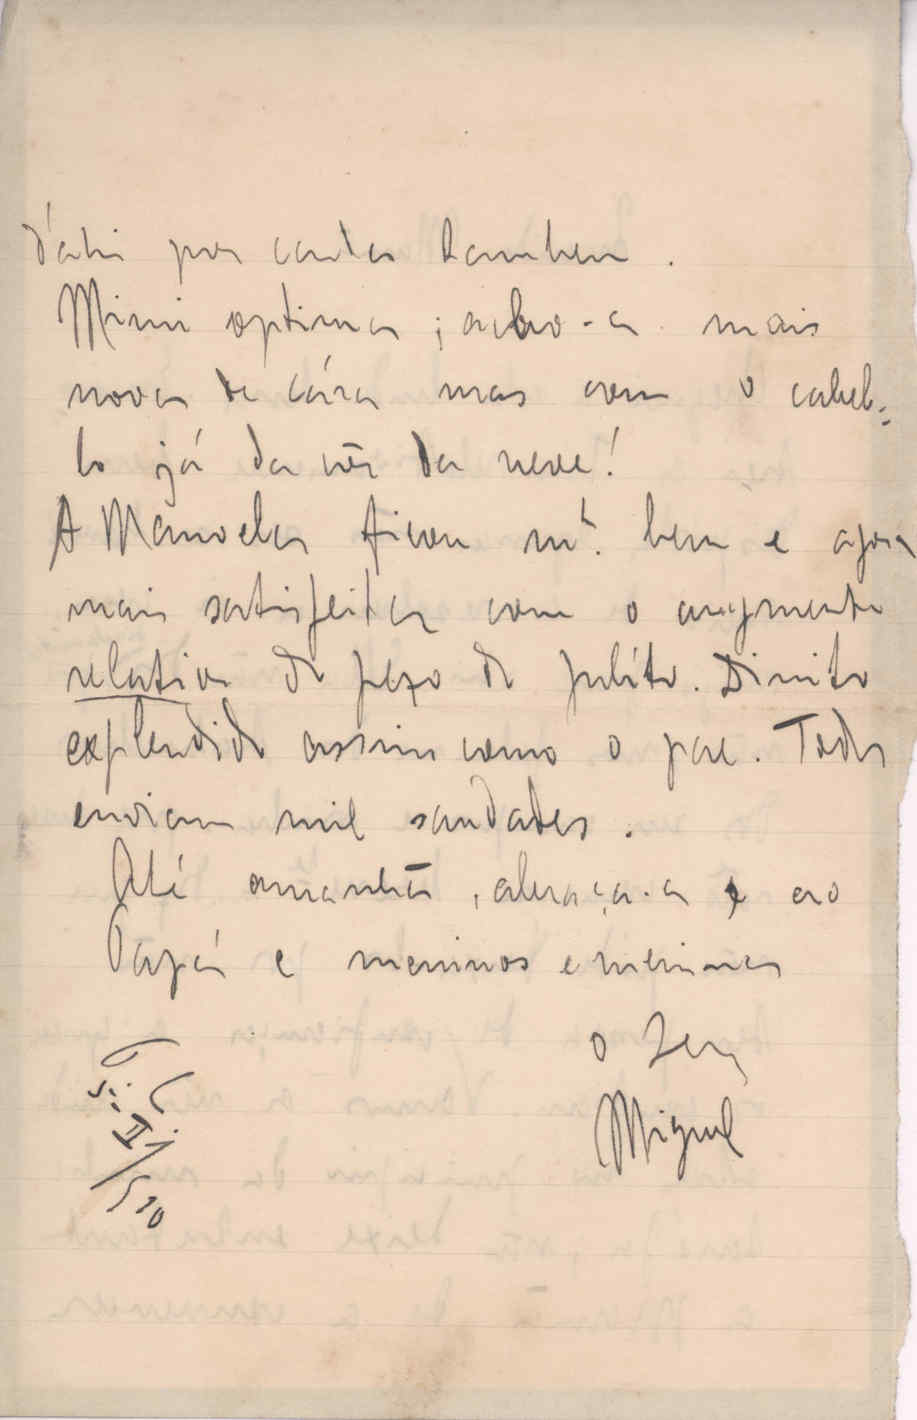 d'ahi por contas tambem.
Mimi optima; acho-a mais
nova de cára mas com o cabel-
lo já da côr da neve!
A Manoela ficou mto. bem e agora
mais satisfeita com o augmento
relativo de pezo de Julito. Dinito
explendido assim como o pae. Todos
enviam mil saudades.
Até amanhã, abraça-a e ao
Papá e meninos e meninas
o Seu
Miguel
II/510